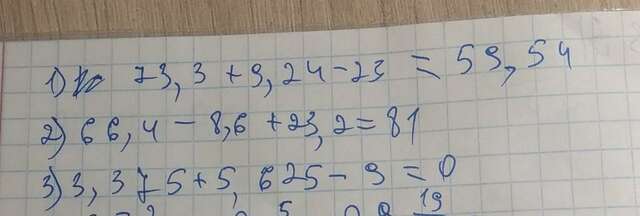 1) 73,3 + 9,24 - 23 = 59,54
2) 66,4 - 8,6 + 23,2 = 81
3) 3,375 + 5,625 - 9 = 0